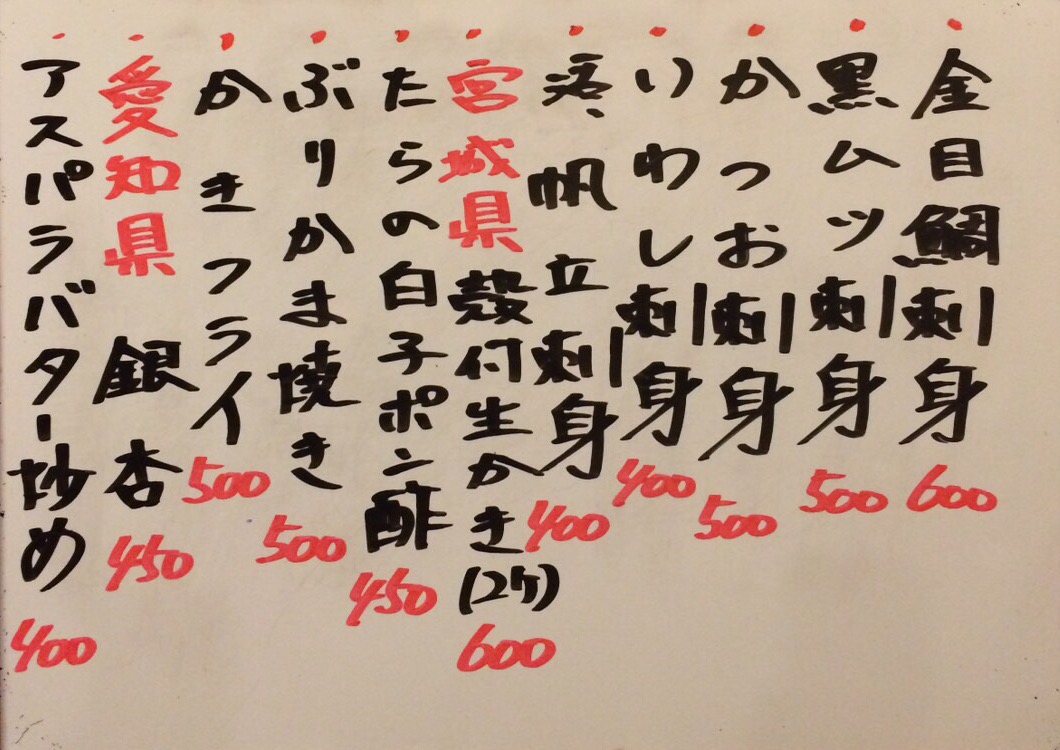 金目鯛刺身 600
黒ムツ刺身 500
かつお刺身 500
いわし刺身 400
活帆立刺身 400
宮城県 殻付生かき(2ケ) 600
たらの白子ポン酢 450
ぶりかま焼き 500
かきフライ 500
愛知県 銀杏 450
アスパラバター炒め 400